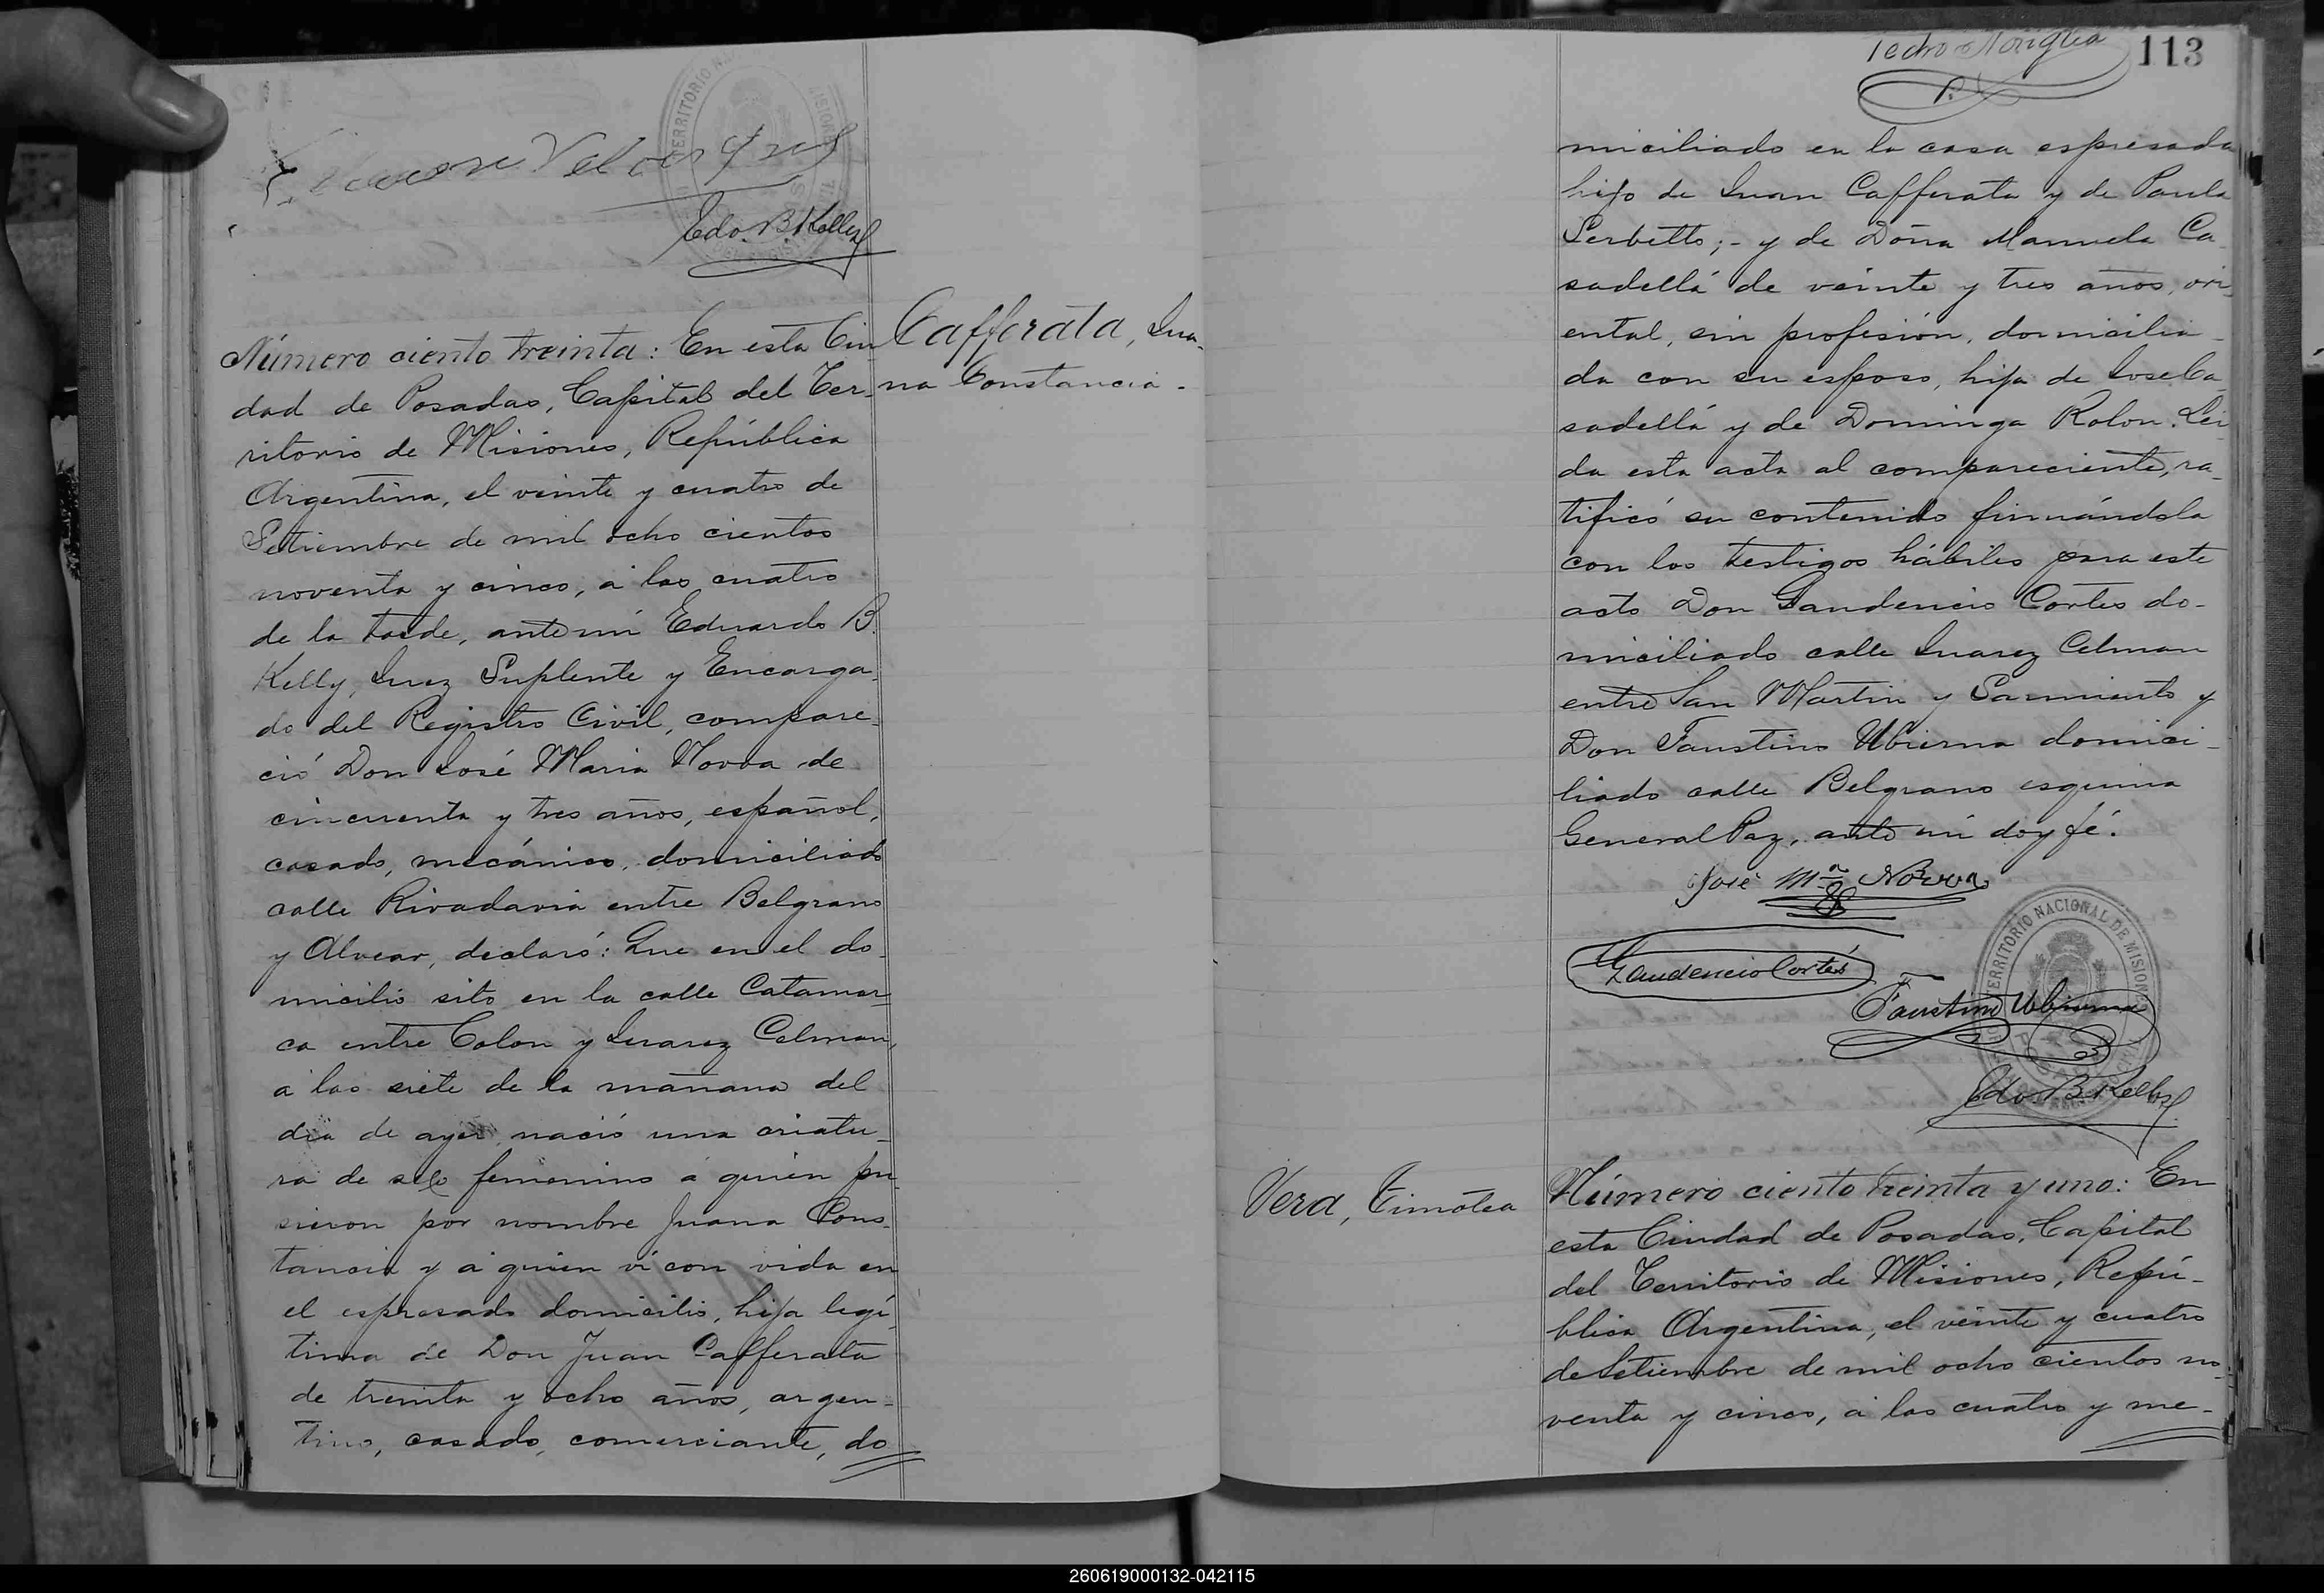 Velasquez
Edo. B. Kelly
Cafferata, Jua-
na Constancia.
Número ciento treinta: En esta Ciu
dad de Posadas, Capital del Ter-
ritorio de Misiones, República
Argentina, el veinte y cuatro de
Setiembre de mil ocho cientos
noventa y cinco, á las cuatro
de la tarde, ante mi Eduardo B.
Kelly, Juez Suplente y Encarga-
do del Registro Civil, compare-
ció Don José Maria Novoa de
cincuenta y tres años, español,
casado, mecánico, domiciliado
calle Rivadavia entre Belgrano
y Alvear, declaró: Que en el do-
micilio sito en la calle Catamar-
ca entre Colon y Juarez Celman,
á las siete de la mañana del
dia de ayer nació una criatu-
ra de sexo femenino á quien pu-
sieron por nombre Juana Cons-
tancia y á quien ví con vida en
el espresado domicilio, hija legí-
tima de Don Juan Cafferata
de treinta y ocho años, argen-
tino, casado, comerciante, do
113
Pedro
miciliado en la casa espresada
hijo de Juan Cafferata y de Paula
Serbetto;- y de Doña Manuela Ca-
sadellá de veinte y tres años, ori-
ental, sin profesión, domicilia-
da con su esposo, hija de José Ca-
sadellá y de Dominga Rolon. Lei-
da esta acta al compareciente, ra-
tificó su contenido firmándola
con los testigos hábiles para este
acto Don Gaudencio Cortes do-
miciliado calle Juarez Celman
entre San Martin y Sarmiento y
Don Faustino Ubierna domici-
liado calle Belgrano esquina
General Paz, ante mí doy fé.
José Mª Novoa
Gaudencio Cortés
TERRITORIO NACIONAL DE MISIONES
Faustino Ubierna
Edo B. Kelly
Vera, Timotea
Número ciento treinta y uno: En
esta Ciudad de Posadas, Capital
del Territorio de Misiones, Repú-
blica Argentina, el veinte y cuatro
de Setiembre de mil ocho cientos no-
venta y cinco, á las cuatro y me-
260619000132-042115